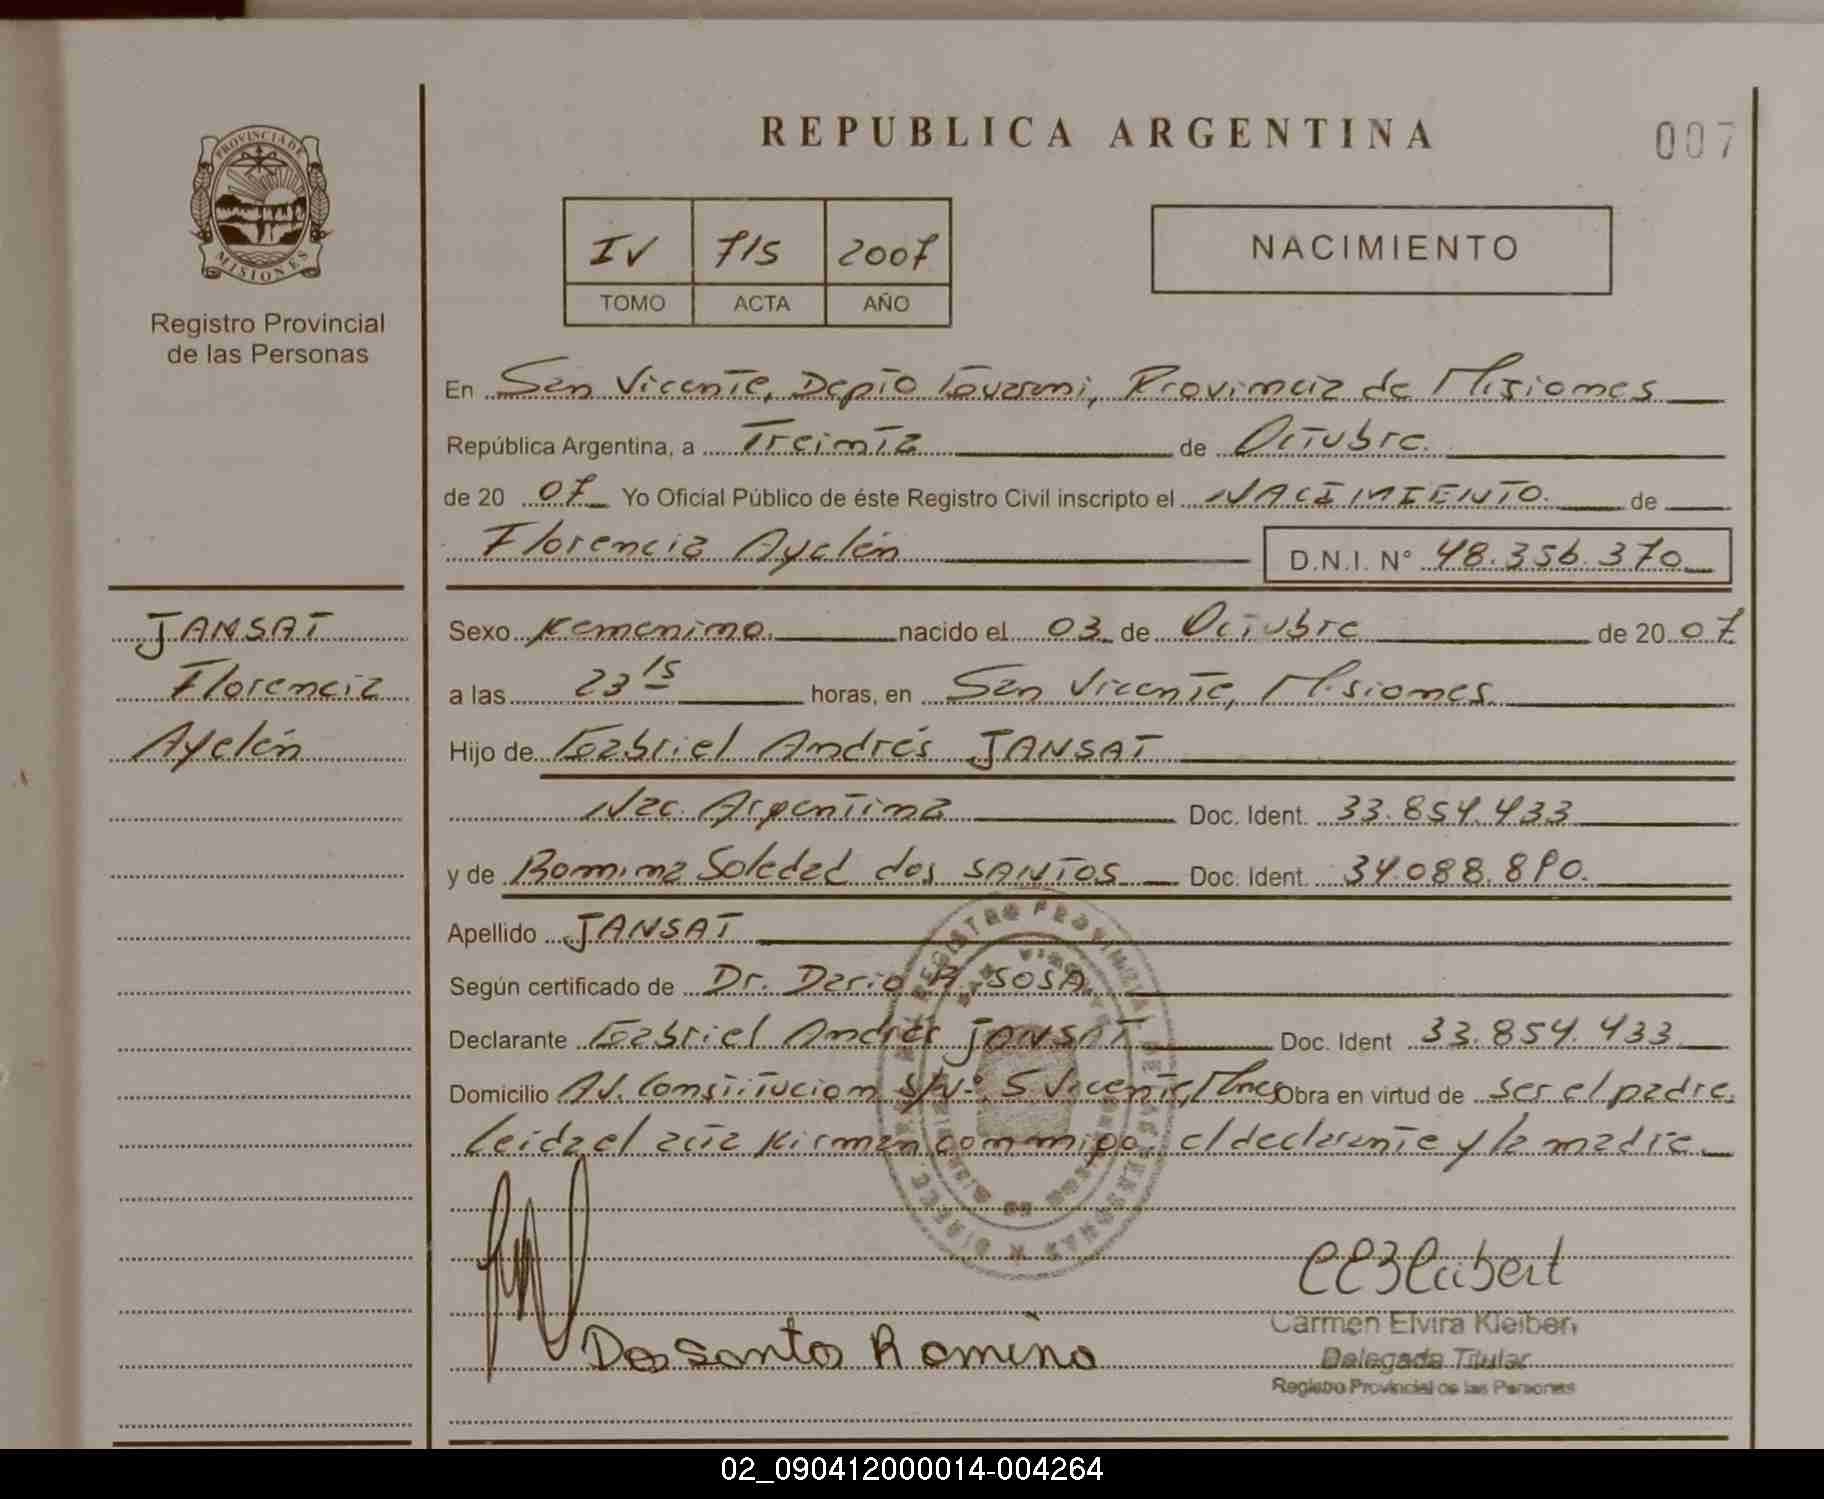 REPUBLICA ARGENTINA
007
PROVINCIA DE
MISIONES
Registro Provincial
de las Personas
IV 715 2007
TOMO ACTA AÑO
NACIMIENTO
En San Vicente, Depto Guaraní, Provincia de Misiones
República Argentina, a Treinta de Octubre.
de 20 07 Yo Oficial Público de éste Registro Civil inscripto el NACIMIENTO. de
Florencia Ayelén D.N.I. N° 48.356.370
JANSAT
Florencia
Ayelén
Sexo Femenino. nacido el 03 de Octubre de 20 07
a las 23 15 horas, en San Vicente, Misiones.
Hijo de Gabriel Andrés JANSAT
Nac. Argentina Doc. Ident. 33.854.433
y de Romina Soledad dos SANTOS Doc. Ident. 34.088.890.
Apellido JANSAT
Según certificado de Dr. Dario R. SOSA.
Declarante Gabriel Andrés JANSAT Doc. Ident 33.854.433
Domicilio Av. Constitucion S/Nº. S. Vicente, Mnes Obra en virtud de ser el padre.
Leida el acta firman conmigo, el declarante y la madre.
Dos Santos Romina
Carmen Elvira Kleibert
Delegada Titular
Registro Provincial de las Personas
02_090412000014-004264